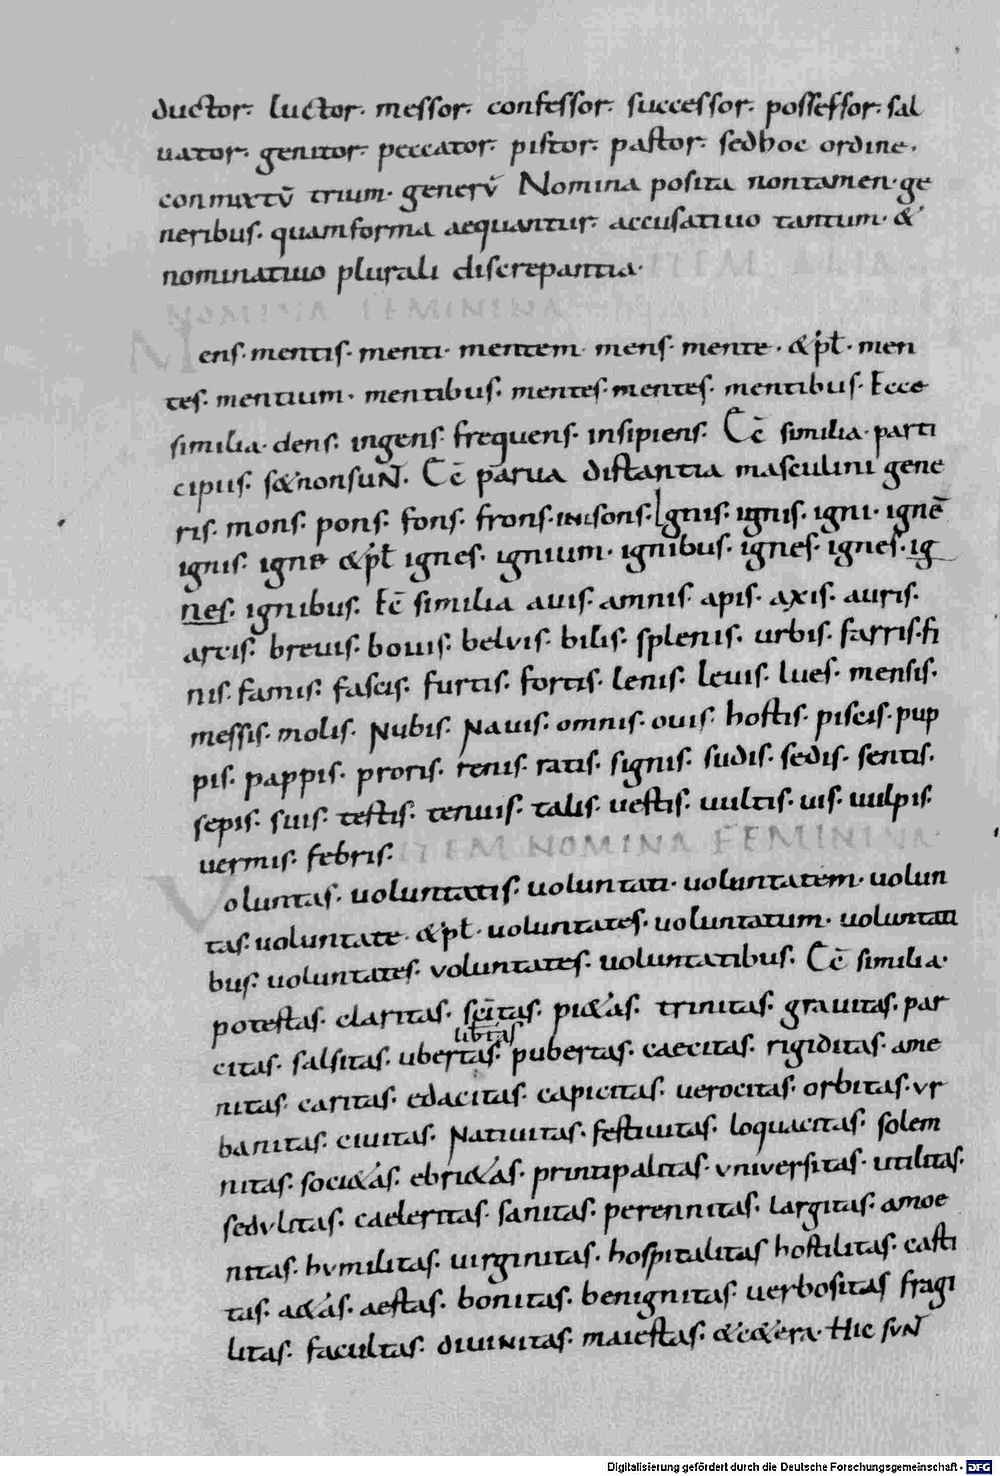 ductor· luctor· messor· confessor· successor· possessor· sal
uator· genitor· peccator· pistor· pastor· sedhoc ordine·
conmixtū trium· generū Nomina posita nontamen·ge
neribus· quamforma aequantur· accusatiuo tantum· &
nominatiuo plurali discrepantia· ITEM ALIA
NOMINA FEMININA
Mens· mentis· menti· mentem· mens· mente· & pł· men
tes· mentium· mentibus· mentes· mentes· mentibus· Ecce
similia· dens· ingens· frequens· insipiens· Ec̄ similia· parti
cipiis· s&nonsunt· Ec̄ parua distantia masculini gene
ris· mons· pons· fons· frons· insons· Ignis· ignis· igni· ignē
ignis· igne &pł ignes· ignium· ignibus· ignes· ignes· ig
nes· ignibus· Ec̄ similia auis· amnis· apis· axis· auris·
artis· breuis· bouis· beluis· bilis· splenis· urbis· farris· fi
nis· famis· fascis· furtis· fortis· lenis· leuis· lues· mensis·
messis· molis· Nubis· Nauis· omnis· ouis· hostis· piscis· pup
pis· pappis· proris· renis· ratis· signis· sudis· sedis· sentis·
sepis· suis· testis· tenuis· talis· uestis· uultis· uis· uulpis·
uermis· febris· ITEM NOMINA FEMININA·
Voluntas· uoluntatis· uoluntati· uoluntatem· uolun
tas· uoluntate· &pł· uoluntates· uoluntatum· uoluntati
bus· uoluntates· voluntates· uoluntatibus· Ec̄ similia·
potestas· claritas· sc̄itas· pi&as· trinitas· grauitas· par
libtas
citas· salsitas· ubertas· pubertas· caecitas· rigiditas· ame
nitas· caritas· edacitas· capicitas· uerocitas· orbitas· vr
banitas· ciuitas· Natiuitas· festiuitas· loquacitas· solem
nitas· soci&as· ebri&as· printipalitas· vniuersitas· utilitas·
sedvlitas· caeleritas· sanitas· perennitas· largitas· amoe
nitas· hvmilitas· uirginitas· hospitalitas hostilitas· casti
tas· a&as· aestas· bonitas· benignitas· uerbositas fragi
litas· facultas· diuinitas· maiestas· &c&era· Hic sunt